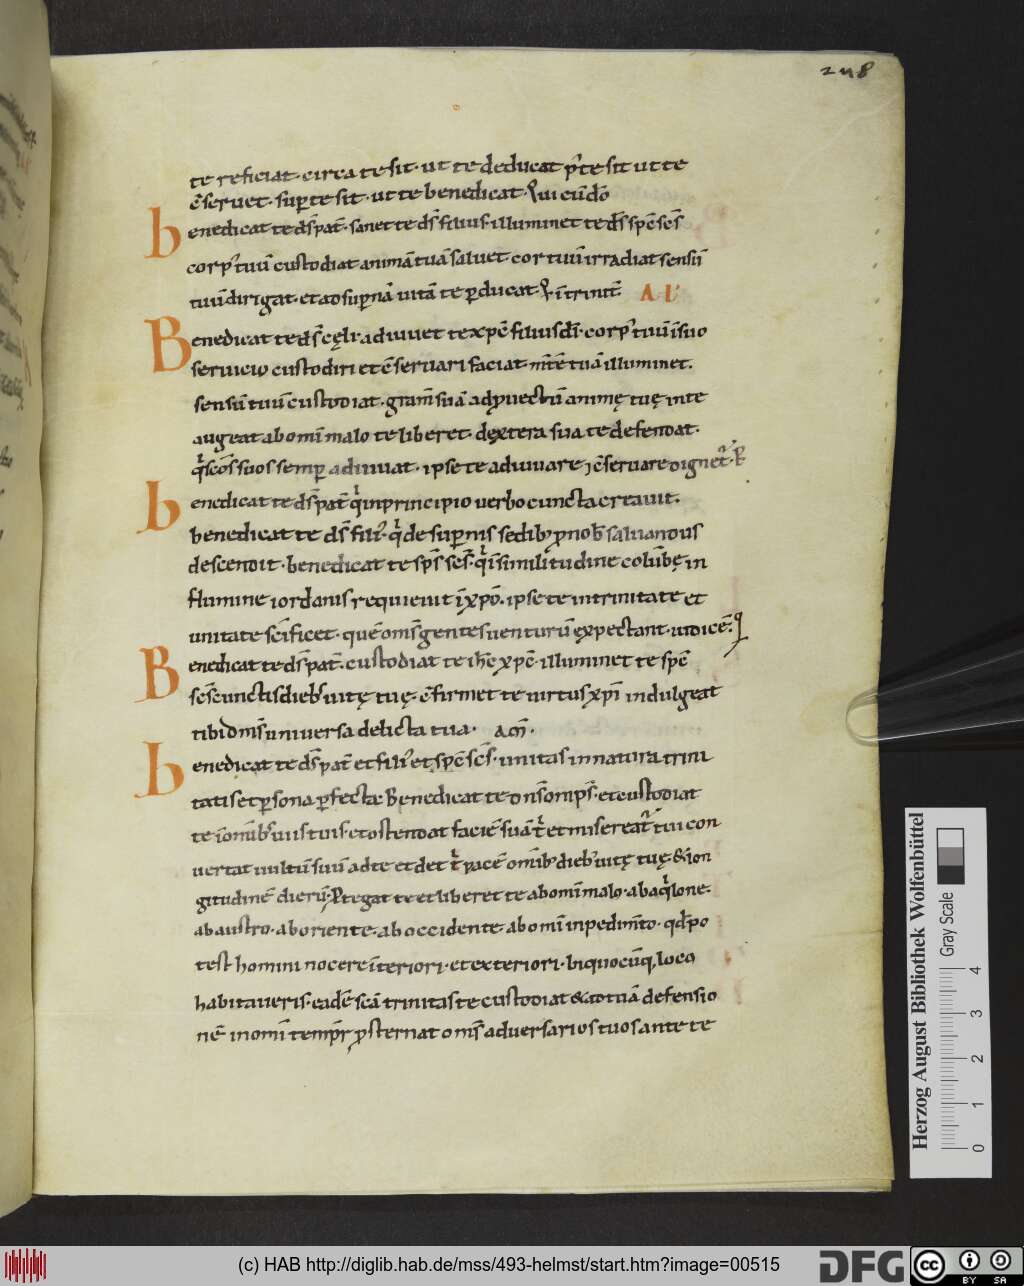 248
te reficiat. circa te sit. ut te deducat p᷑ te sit ut te
c̄seruet. sup te sit. ut te benedicat. Qui cū dō
benedicat te ds̄ pat̄. sanet te ds̄ filius. illuminet te ds̄ sp̄c sc̄s
corp᷒ tuū custodiat animā tuā saluet. cor tuū irradiat sensū
tuū dirigat. et ad sup̱nā uitā te p̱ducat. Q̄ ī trinit̄ AL̄
Benedicat te ds̄ cęli. adiuuet te xp̄c filius dī. corp᷒ tuū ī suo
seruicio custodiri et c̄seruari faciat. m̄tē tuā illuminet.
sensū tuū custodiat. gram̄ suā ad ꝓuectū animę tuę in te
augeat ab omī malo te liberet. dextera sua te defendat.
qͥ sc̄os suos semp̱ adiuuat. ipse te adiuuare ⁊ c̄seruare dignet᷒. P̄
benedicat te ds̄ pat̄ qͥ in principio uerbo cuncta creauit.
benedicat te ds̄ fili᷒. qͥ de sup̱nis sedib; ꝓ nob̄ saluandus
descendit. benedicat te sp̄s sc̄s. qͥ ī similitudine colūbę in
flumine iordanis requieuit ī xp̄o. ipse te in trinitate et
unitate sc̄ificet. quē om̄s gentes uenturū expectant. iudicē. q
Benedicat te ds̄ pat̄. custodiat te ih̄c xp̄c. illuminet te sp̄c
sc̄s cunctis dieb; uitę tuę. c̄firmet te uirtus xp̄i indulgeat
tibi dm̄s uniuersa delicta tua. am̄.
benedicat te ds̄ pat̄ et fili᷒ et sp̄c sc̄s. unitas in natura trini
tatis et p̱sona p̱fecta. Benedicat te dn̄s omp̄s. et custodiat
te ī omīb; uiis tuis. et ostendat faciē suā t̄ et misereat᷒ tui con
uertat uultū suū ad te et det t̄ pacē omīb; dieb; uitę tuę & lon
gitudinē dierū. Ꝓtegat te et liberet te ab omī malo. ab aqͥlone.
ab austro. ab oriente. ab occidente. ab omī inpedim̄to. qđ po
test homini nocere īteriori. et exteriori. bi quocūq; loco
habitaueris. eadē sc̄a trinitas te custodiat & tuā defensio
nē in omī temp̱r ꝓsternat om̄s aduersarios tuos ante te
Herzog August Bibliothek Wolfenbüttel
Gray Scale
0 1 2 3 4
(c) HAB http://diglib.hab.de/mss/493-helmst/start.htm?image=00515
DFG
cc BY SA